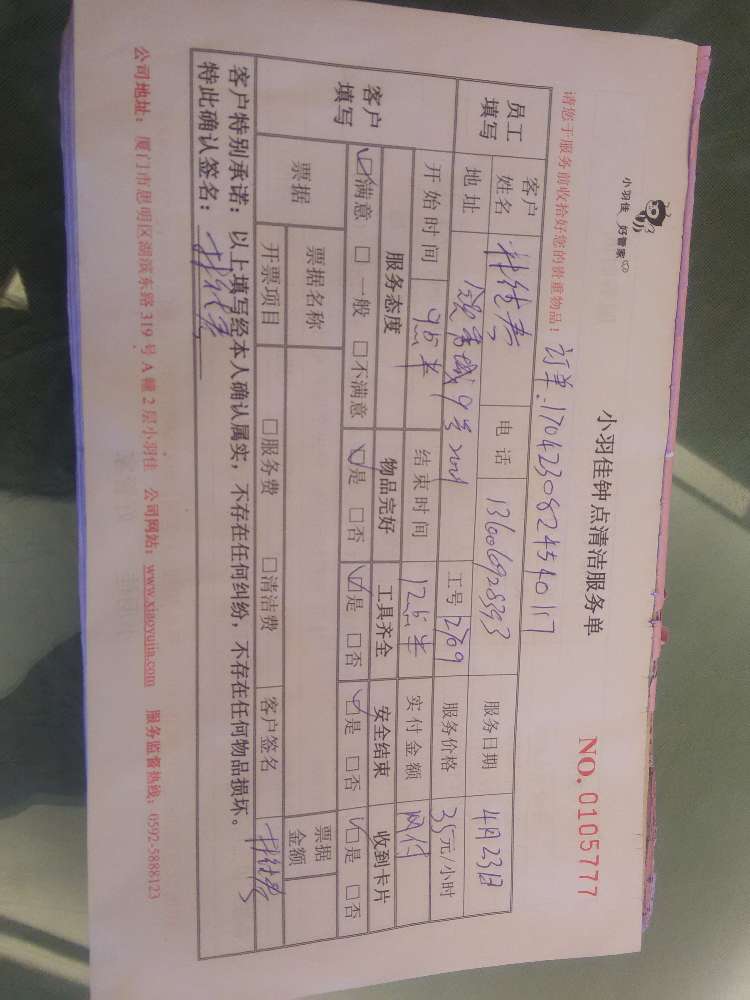 小羽佳 好管家
小羽佳钟点清洁服务单
NO. 0105777
请您于服务前收拾好您的贵重物品！
订单:1704230824540117
员工填写 客户姓名 电话 13606928393 服务日期 4月23日
地址 9号 工号 2709 服务价格 35元/小时
开始时间 9点半 结束时间 12点半 实付金额 网付
客户填写 服务态度 物品完好 工具齐全 安全结束 收到卡片
☑满意 □一般 □不满意 ☑是 □否 ☑是 □否 ☑是 □否 ☑是 □否
票据 票据名称 票据金额
开票项目 □服务费 □清洁费 客户签名
客户特别承诺：以上填写经本人确认属实，不存在任何纠纷，不存在任何物品损坏。
特此确认签名：
公司地址：厦门市思明区湖滨东路319号A幢2层小羽佳 公司网站：www.xiaoyujia.com 服务监督热线：0592-5888123